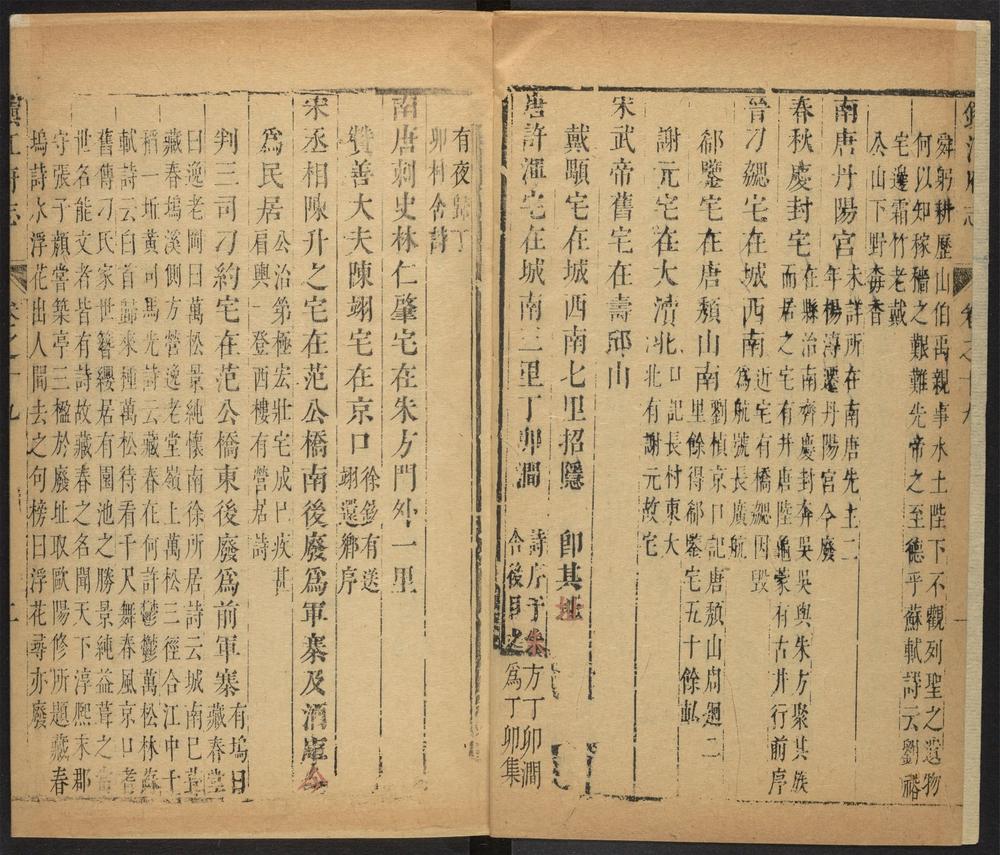 舜躬耕歷山伯禹親事水土陛下不觀列聖之遺物
何以知稼穡之艱難先帝之至德乎蘇軾詩云劉裕
宅邊霜竹老戴
公山下野香
南唐丹陽宮
未詳所在南唐先主二
年楊溥遷丹陽宮今廢
春秋慶封宅
在縣治南齊慶封奔吳吳與朱方聚其族
而居之宅有井唐陸龜蒙有古井行前序
晉刁勰宅在城西南
近宅有橋勰因毀
爲航號長廣航
郗鑒宅在唐頹山南
劉楨京口記唐頹山周廻二
里餘得郗鑒宅五十餘畝
謝元宅在大瀆北
口記長村東大
北有謝元故宅
宋武帝舊宅在壽邱山
戴顒宅在城西南七里招隱
卽其址
唐許渾宅在城南三里丁卯澗
詩序于朱方丁卯澗
舍後目之爲丁卯集
有夜歸丁
卯村舍詩
南唐刺史林仁肇宅在朱方門外一里
贊善大夫陳翊宅在京口
徐鉉有送
翊還鄉序
宋丞相陳升之宅在范公橋南後廢爲軍寨及酒庫今
爲民居
公治第極宏壯宅成已疾甚
肩輿一登西樓有營居詩
判三司刁約宅在范公橋東後廢爲前軍寨
有藏春塢
堂曰
曰逸老岡曰萬松景純懷南徐所居詩云城南已葺
藏春塢溪側方營逸老堂嶺上萬松三徑合江中千
稻一坵黃司馬光詩云藏春在何許鬱鬱萬松林蘇
軾詩云白首歸來種萬松待看千尺舞春風京口耆
舊傳刁氏家世簪纓居有園池之勝景純益葺之當
世名能文者皆有詩故藏春之名聞天下淳熙末郡
守張子顏嘗築亭三楹於廢址取歐陽修所題藏春
塢詩水浮花出人間去之句榜曰浮花尋亦廢
鎭江府志
卷之十九